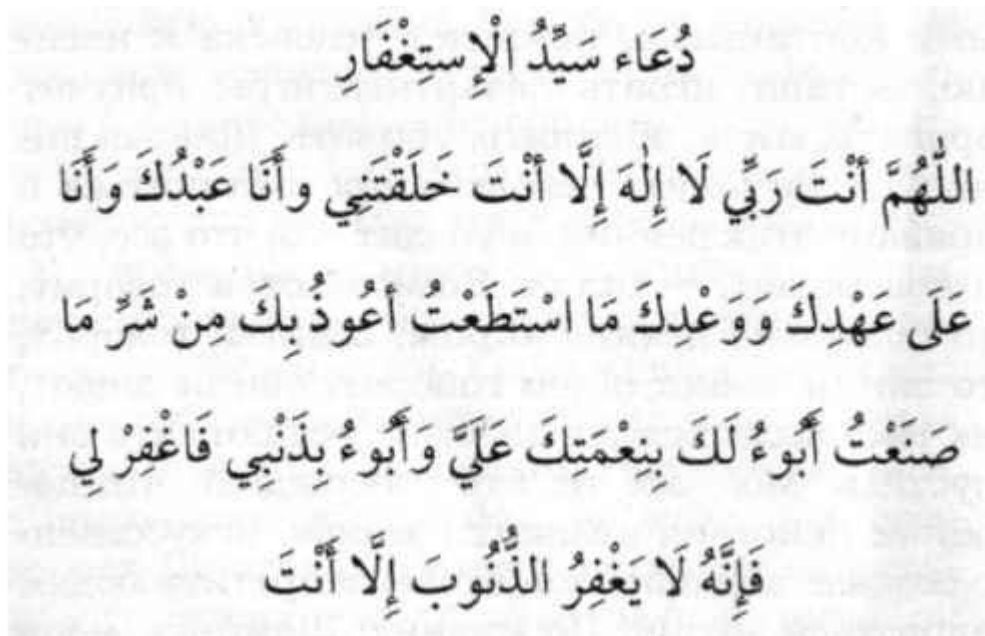 دُعَاء سَيِّدُ الْإِستِغْفَارِ
اللَّهُمَّ أَنْتَ رَبِّي لَا إِلَهَ إِلَّا أَنْتَ خَلَقْتَنِي وأَنَا عَبْدُكَ وَأَنَا
عَلَى عَهْدِكَ وَوَعْدِكَ مَا اسْتَطَعْتُ أَعُوذُ بِكَ مِنْ شَرِّ مَا
صَنَعْتُ أَبُوءُ لَكَ بِنِعْمَتِكَ عَلَيَّ وَأَبُوءُ بِذَنْبِي فَاغْفِرْ لِي
فَإِنَّهُ لَا يَغْفِرُ الذُّنُوبَ إِلَّا أَنْتَ